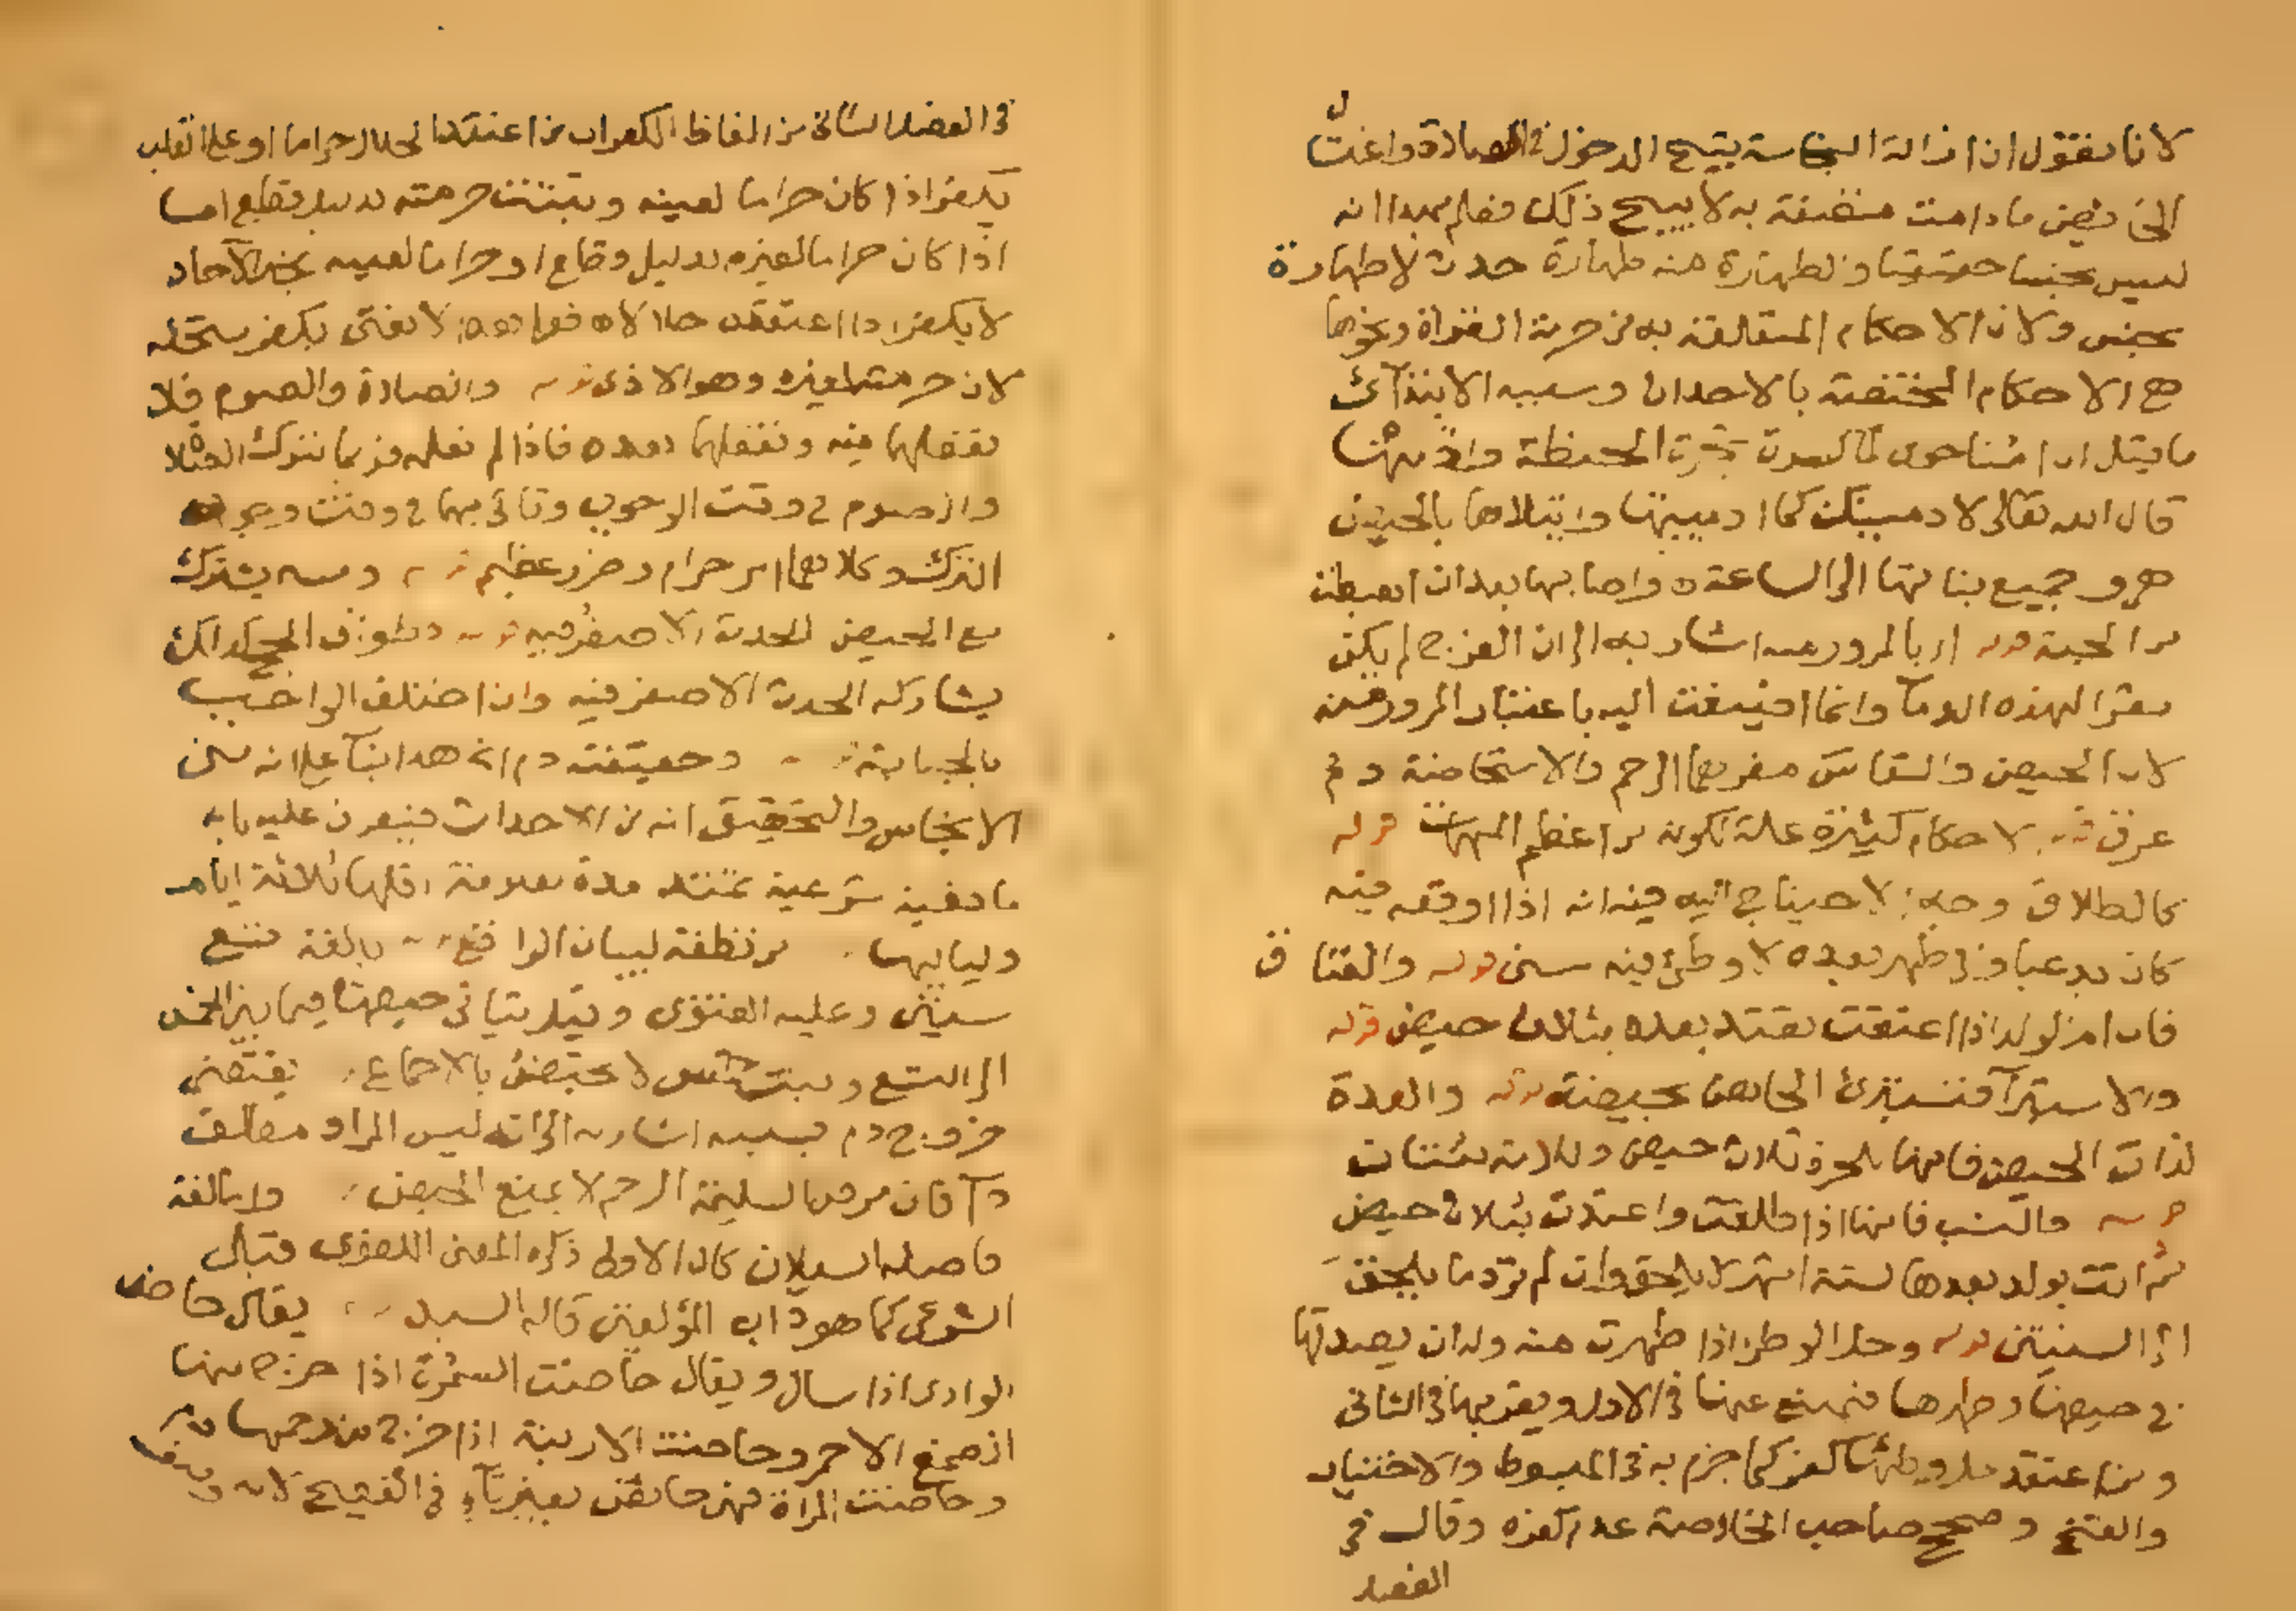 لانا نقول ان ازالة النجاسة يبيح الدخول في الصلاة واغتسال
الحائض ما دامت متصفة به لا يبيح ذلك فعلم بهذا انه
ليس بنجس حقيقة والطهارة منه طهارة حدث لا طهارة
نجس ولان الاحكام المتعلقة به من حرمة القراة ونحوها
هي الاحكام المختصة بالاحداث وسببه الابتدائ
ما قيل ان امنا حوى لما كسرت شجرة الحنطة وادمتها
قال الله تعالى لادمينك كما ادميتها وابتلاها بالحيض
هي وجميع بناتها الى الساعة واصابها بعد ان اهبطت
من الجنة قوله اي بالمرور منه اشار به الى ان الفرج لم يكن
مقرا لهذه الدما وانما اضيفت اليه باعتبار المرور منه
لان الحيض والنفاس مقرهما الرحم والاستحاضة دم
عرق قوله لاحكام كثيرة علة لكونه من اعظم المهمات قوله
كالطلاق وجه الاحتياج اليه فيه انه اذا اوقعه فيه
كان بدعيا وفي طهر بعده لا وطئ فيه سني قوله والعتاق
فان ام الولد اذا اعتقت تعتد بعده بثلاث حيض قوله
والاستبرآ فتستبرئ الحائض بحيضة قوله والعدة
لذات الحيض فانها للحرة ثلاث حيض وللامة ثنتان
قوله والنسب فانها اذا طلقت واعتدت بثلاث حيض
ثم اتت بولد بعدها لستة اشهر لا يلحق وان لم تر دما يلحق
الى السنتين قوله وحل الوطئ اذا طهرت منه وله ان يصدقها
في حيضها وطهرها فيمتنع عنها في الاول ويقربها في الثاني
ومن اعتقد حل وطئها كفر كما جزم به في المبسوط والاختيار
والفتح وصحح صاحب الخلاصة عدم كفره وقال في
الفصل
في الفصل الثاني من الفاظ الكفر ان من اعتقد الحلال حراما او على القلب
يكفر اذا كان حراما لعينه وثبتت حرمته بدليل قطعي اما
اذا كان حراما لغيره بدليل قطعي او حراما لعينه بخبر الآحاد
لا يكفر اذا اعتقده حلالا فعلى هذا لا يفتى بكفر مستحله
لان حرمته لغيره وهو الاذى قوله والصلاة والصوم فلا
تفعلهما فيه وتفعلهما بعده فاذا لم تعلمه فربما تترك الصلاة
والصوم في وقت الوجوب وتاتي بهما في وقت وجوب
الترك وكلاهما امر حرام وضرر عظيم قوله ومسه يشترك
مع الحيض الحدث الاصغر فيه قوله وطواف الحج كذلك
يشاركه الحدث الاصغر فيه وان اختلف الواجب
بالجناية قوله وحقيقته دم الخ هذا بنآ على انه من
الانجاس والتحقيق انه من الاحداث فيعرف عليه بانه
مانعية شرعية تمتد مدة معلومة اقلها ثلاثة ايام
ولياليها من نظفة لبيان الواقع بالغة تسع
سنين وعليه الفتوى وقيل يتاتى حيضها فيما بين الخمس
الى التسع وبنت خمس لا تحيض بالاجماع يقتضي
خروج دم بسببه اشار به الى انه ليس المراد مطلق
دآ فان مرض السليمة الرحم لا يمنع الحيض واياسة
واصله السيلان كان الاولى ذكره المعنى اللغوي قبل
الشرعي كما هو داب المؤلفين قاله السيد يقال حاض
الوادي اذا سال ويقال حاضت السمرة اذا خرج منها
الصمغ الاحمر وحاضت الارنبة اذا خرج من رحمها دم
وحاضت المرأة فهي حائض بغير تآء في الفصيح لانه وصف